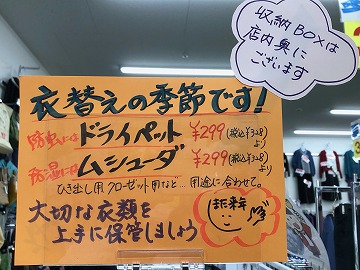 収納BOXは
店内奥に
ございます
衣替えの季節です!
防虫には ドライペット ¥299(税込¥328)より
防湿には ムシューダ ¥299(税込¥328)より
ひき出し用クローゼット用など…用途に合わせて。
大切な衣類を
上手に保管しましょう
また来年